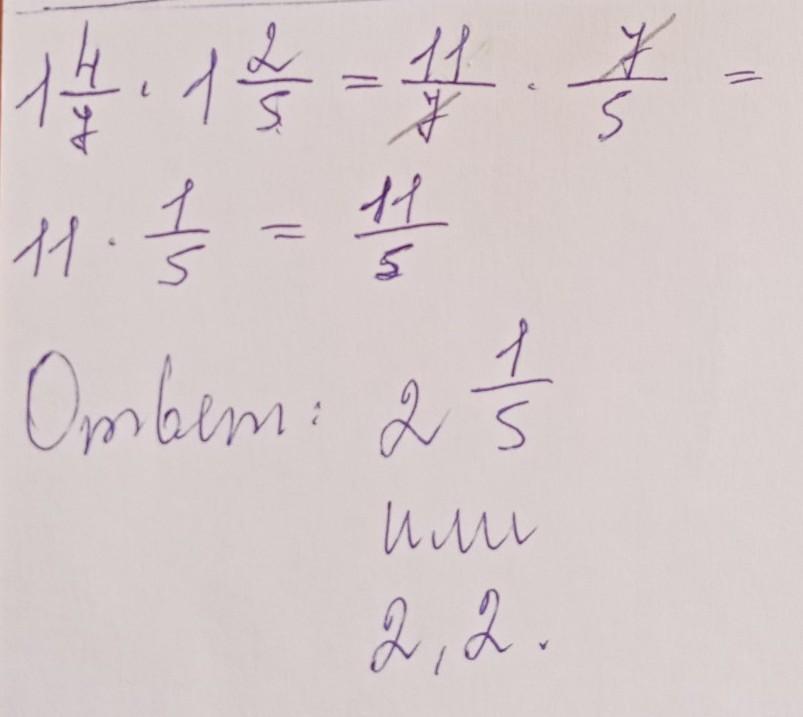 1 4/7 · 1 2/5 = 11/7 · 7/5 =
11 · 1/5 = 11/5
Ответ: 2 1/5
или
2,2.